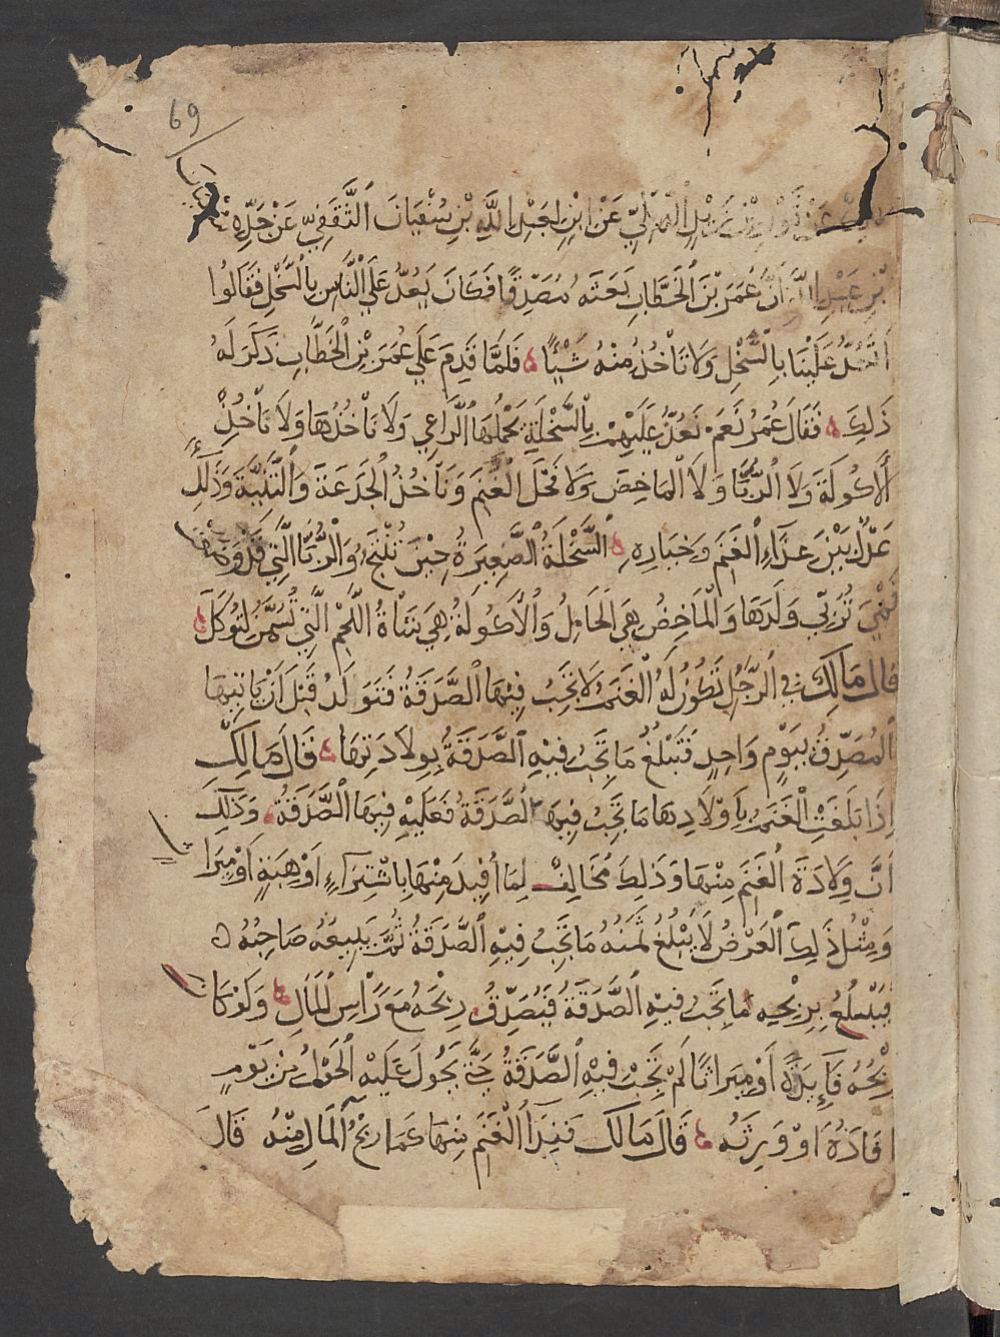 69
عَنْ ثَوْرِ بْنِ زَيْدٍ الدِّيلِيِّ عَنْ ابْنٍ لِعَبْدِ اللَّهِ بْنِ سُفْيَانَ الثَّقَفِيِّ عَنْ جَدِّهِ سُفْيَانَ
بْنِ عَبْدِ اللَّهِ أَنَّ عُمَرَ بْنَ الْخَطَّابِ بَعَثَهُ مُصَدِّقًا فَكَانَ يَعُدُّ عَلَى النَّاسِ بِالسَّخْلِ فَقَالُوا
أَتَعُدُّ عَلَيْنَا بِالسَّخْلِ وَلَا تَأْخُذُ مِنْهُ شَيْئًا فَلَمَّا قَدِمَ عَلَى عُمَرَ بْنِ الْخَطَّابِ ذَكَرَ لَهُ
ذَلِكَ فَقَالَ عُمَرُ نَعَمْ نَعُدُّ عَلَيْهِمْ بِالسَّخْلَةِ يَحْمِلُهَا الرَّاعِي وَلَا نَأْخُذُهَا وَلَا نَأْخُذُ
الْأَكُولَةَ وَلَا الرُّبَّا وَلَا الْمَاخِضَ وَلَا فَحْلَ الْغَنَمِ وَنَأْخُذُ الْجَذَعَةَ وَالثَّنِيَّةَ وَذَلِكَ
عَدْلٌ بَيْنَ غِذَاءِ الْغَنَمِ وَخِيَارِهِ السَّخْلَةُ الصَّغِيرَةُ حِينَ تُنْتَجُ وَالرُّبَّا الَّتِي قَدْ وَضَعَتْ
فَهِيَ تُرَبِّي وَلَدَهَا وَالْمَاخِضُ هِيَ الْحَامِلُ وَالْأَكُولَةُ هِيَ شَاةُ اللَّحْمِ الَّتِي تُسَمَّنُ لِتُؤْكَلَ
قَالَ مَالِكٌ فِي الرَّجُلِ تَكُونُ لَهُ الْغَنَمُ لَا تَجِبُ فِيهَا الصَّدَقَةُ فَتَوَالَدُ قَبْلَ أَنْ يَأْتِيَهَا
الْمُصَدِّقُ بِيَوْمٍ وَاحِدٍ فَتَبْلُغُ مَا تَجِبُ فِيهِ الصَّدَقَةُ بِوِلَادَتِهَا قَالَ مَالِكٌ
إِذَا بَلَغَتْ الْغَنَمُ بِأَوْلَادِهَا مَا تَجِبُ فِيهَا الصَّدَقَةُ فَعَلَيْهِ فِيهَا الصَّدَقَةُ وَذَلِكَ
أَنَّ وِلَادَةَ الْغَنَمِ مِنْهَا وَذَلِكَ مُخَالِفٌ لِمَا أُفِيدَ مِنْهَا بِاشْتِرَاءٍ أَوْ هِبَةٍ أَوْ مِيرَاثٍ
وَمِثْلُ ذَلِكَ الْعَرْضُ لَا يَبْلُغُ ثَمَنُهُ مَا تَجِبُ فِيهِ الصَّدَقَةُ ثُمَّ يَبِيعُهُ صَاحِبُهُ
فَيَبْلُغُ بِرِبْحِهِ مَا تَجِبُ فِيهِ الصَّدَقَةُ فَيُصَدِّقُ رِبْحَهُ مَعَ رَأْسِ الْمَالِ وَلَوْ كَانَ
رِبْحُهُ فَائِدَةً أَوْ مِيرَاثًا لَمْ تَجِبْ فِيهِ الصَّدَقَةُ حَتَّى يَحُولَ عَلَيْهِ الْحَوْلُ مِنْ يَوْمِ
أَفَادَهُ أَوْ وَرِثَهُ قَالَ مَالِكٌ فَغِذَاءُ الْغَنَمِ مِنْهَا كَمَا رِبْحُ الْمَالِ مِنْهُ قَالَ